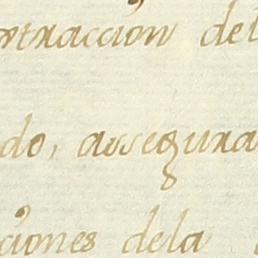 ntraccion del
do, assegura
ciones dela